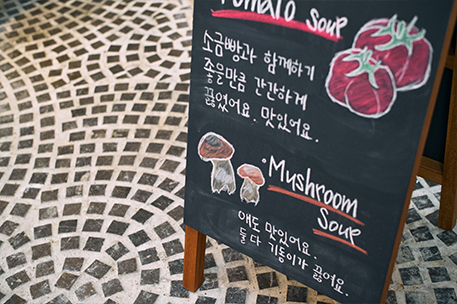 Tomato Soup
소금빵과 함께하기
좋을만큼 간간하게
끓였어요. 맛있어요.
·Mushroom
Soup
얘도 맛있어요.
둘 다 기똥이가 끓여요